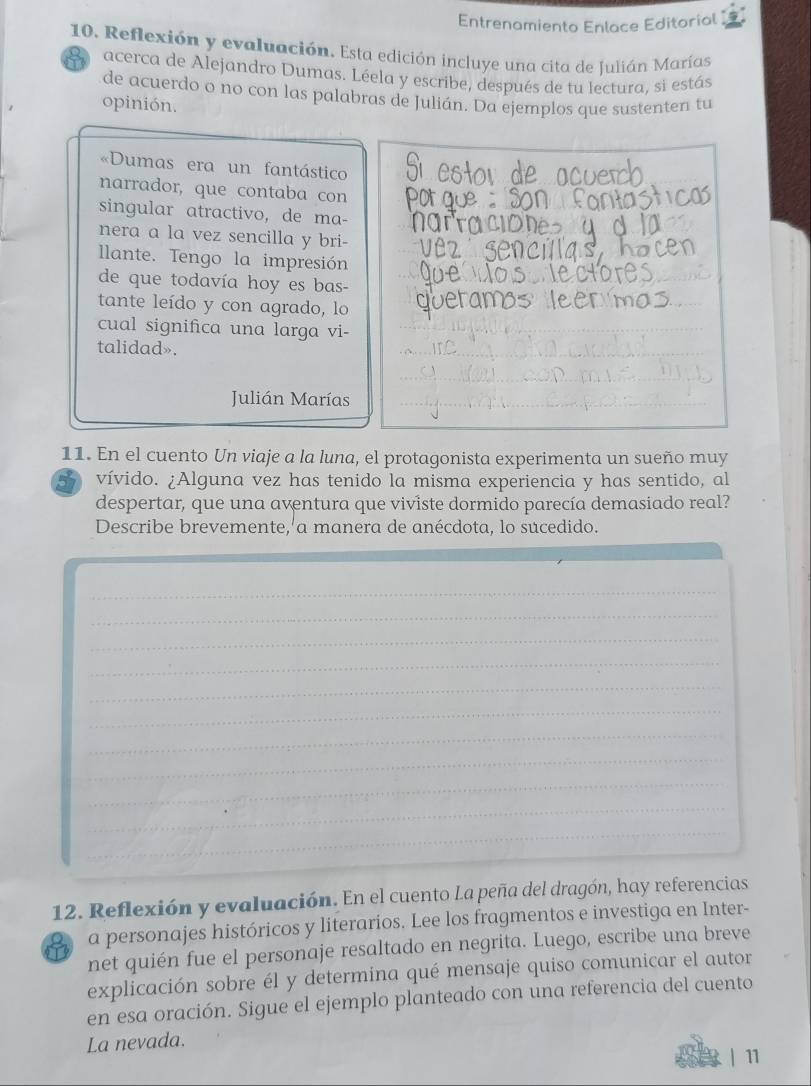 Entrenamiento Enlace Editorial
10. Reflexión y evaluación. Esta edición incluye una cita de Julián Marías
acerca de Alejandro Dumas. Léela y escribe, después de tu lectura, si estás
de acuerdo o no con las palabras de Julián. Da ejemplos que sustenten tu
opinión.
«Dumas era un fantástico
narrador, que contaba con
singular atractivo, de ma-
nera a la vez sencilla y bri-
llante. Tengo la impresión
de que todavía hoy es bas-
tante leído y con agrado, lo
cual significa una larga vi-
talidad».
Julián Marías
Si estoy de acuerdo
por que : son fantasticas
narraciones y a la
vez sencillas, hacen
que los lectores
queramos leer mas
11. En el cuento Un viaje a la luna, el protagonista experimenta un sueño muy
vívido. ¿Alguna vez has tenido la misma experiencia y has sentido, al
despertar, que una aventura que viviste dormido parecía demasiado real?
Describe brevemente, a manera de anécdota, lo sucedido.
12. Reflexión y evaluación. En el cuento La peña del dragón, hay referencias
a personajes históricos y literarios. Lee los fragmentos e investiga en Inter-
net quién fue el personaje resaltado en negrita. Luego, escribe una breve
explicación sobre él y determina qué mensaje quiso comunicar el autor
en esa oración. Sigue el ejemplo planteado con una referencia del cuento
La nevada.
| 11